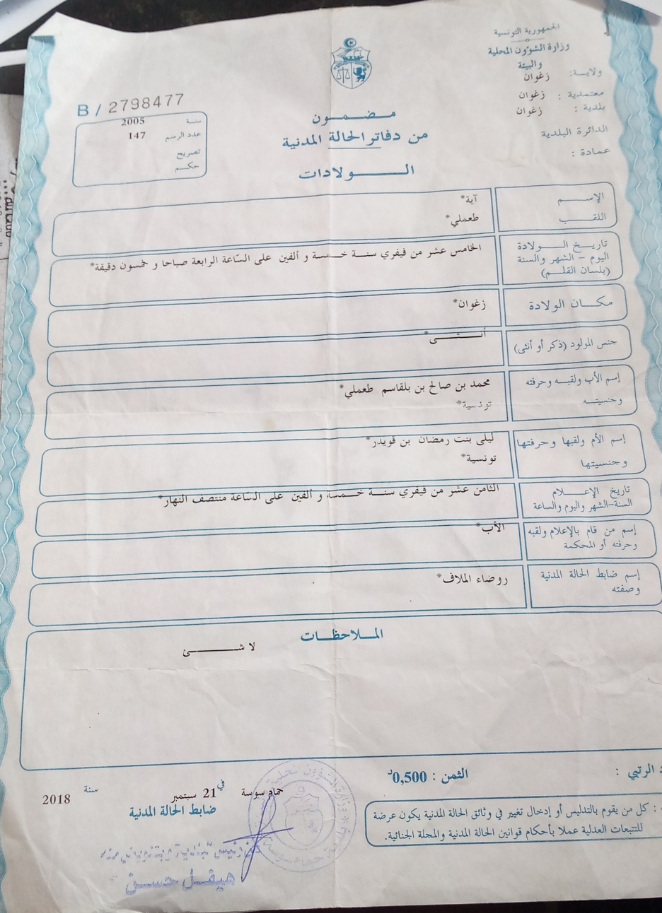 الجمهورية التونسية
وزارة الشؤون المحلية
والبيئة
ولاية: زغوان
معتمدية : زغوان
بلدية : زغوان
الدائرة البلدية
عمادة :
B / 2798477
سنة 2005
عدد الرسم 147
تصريح
حكم
مضمون
من دفاتر الحالة المدنية
الولادات
الإسم آية*
اللقب طعملي*
تاريخ الولادة
اليوم - الشهر والسنة
(بلسان القلم)
الخامس عشر من فيفري سنة خمسة و ألفين على الساعة الرابعة صباحا و خمسون دقيقة*
مكان الولادة زغوان*
جنس المولود (ذكر أو أنثى) أنثى*
إسم الأب ولقبه وحرفته محمد بن صالح بن بلقاسم طعملي*
وجنسيته تونسية*
إسم الأم ولقبها وحرفتها ليلى بنت رمضان بن قويدر*
وجنسيتها تونسية*
تاريخ الإعلام
السنة-الشهر واليوم والساعة
الثامن عشر من فيفري سنة خمسة و ألفين على الساعة منتصف النهار*
إسم من قام بالإعلام ولقبه الأب*
وحرفته أو المحكمة
إسم ضابط الحالة المدنية روضاء الملاف*
وصفته
الملاحظات
لا شئ
الرتبي :
الثمن : 0,500د
حمام سوسة في 21 سبتمبر سنة 2018
ضابط الحالة المدنية
هيفل حسن
: كل من يقوم بالتدليس أو إدخال تغيير في وثائق الحالة المدنية يكون عرضة
للتتبعات العدلية عملا بأحكام قوانين الحالة المدنية والمجلة الجنائية.